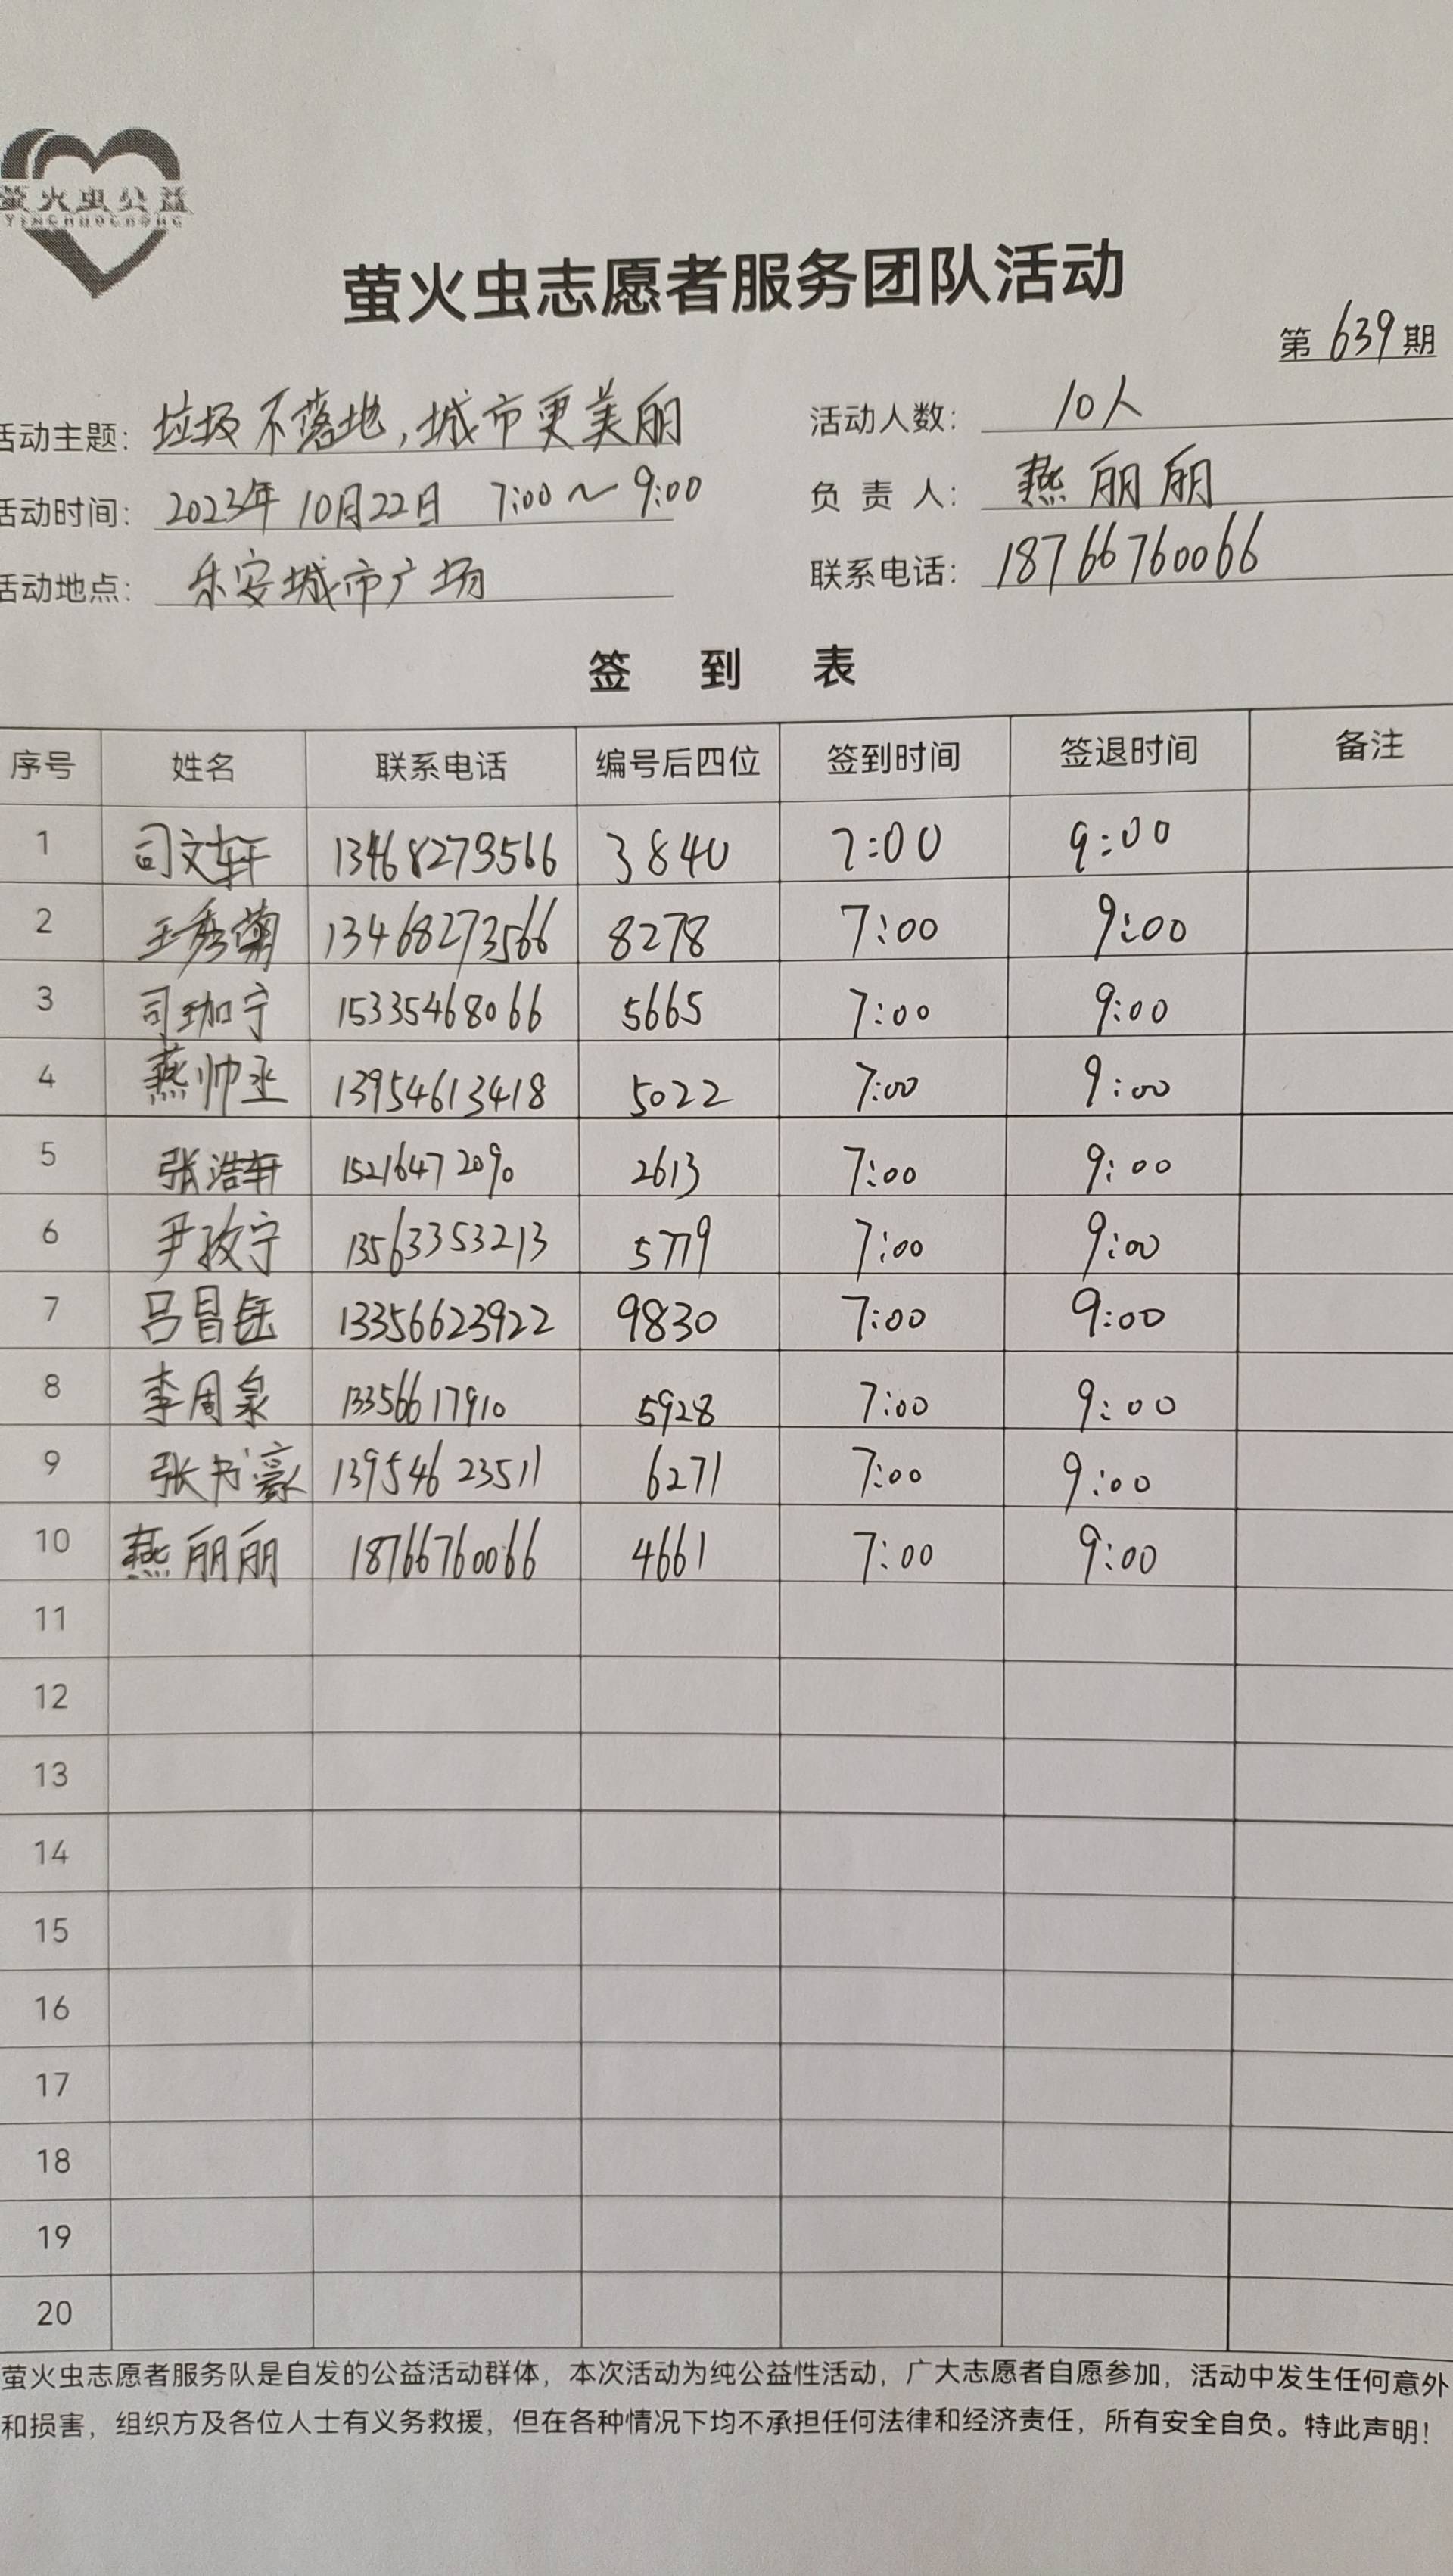 萤火虫公益
YINGHUOCHONG
萤火虫志愿者服务团队活动
第 639 期
活动主题: 垃圾不落地,城市更美丽 活动人数: 10人
活动时间: 2023年10月22日 7:00~9:00 负责人: 燕丽丽
活动地点: 乐安城市广场 联系电话: 18766760066
签到表
序号 姓名 联系电话 编号后四位 签到时间 签退时间 备注
1 司文轩 13468273566 3840 7:00 9:00
2 王秀菊 13468273566 8278 7:00 9:00
3 司珈宁 15335468066 5665 7:00 9:00
4 燕帅丞 13954613418 5022 7:00 9:00
5 张浩轩 15216472090 2613 7:00 9:00
6 尹孜宁 13563353213 5779 7:00 9:00
7 吕昌岳 13356623922 9830 7:00 9:00
8 李周泉 13356617910 5928 7:00 9:00
9 张书豪 13954623511 6271 7:00 9:00
10 燕丽丽 18766760066 4661 7:00 9:00
11
12
13
14
15
16
17
18
19
20
萤火虫志愿者服务队是自发的公益活动群体，本次活动为纯公益性活动，广大志愿者自愿参加，活动中发生任何意外
和损害，组织方及各位人士有义务救援，但在各种情况下均不承担任何法律和经济责任，所有安全自负。特此声明！